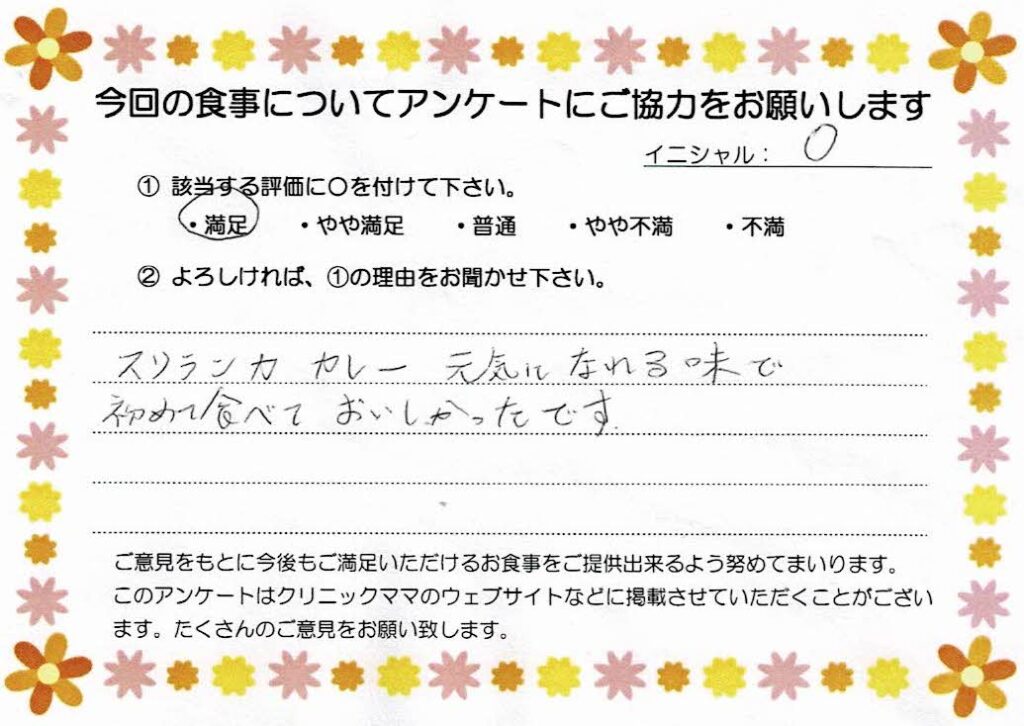 今回の食事についてアンケートにご協力をお願いします
イニシャル： O
① 該当する評価に〇を付けて下さい。
・満足 ・やや満足 ・普通 ・やや不満 ・不満
② よろしければ、①の理由をお聞かせ下さい。
スリランカ カレー 元気に なれる味で
初めて食べて おいしかったです
ご意見をもとに今後もご満足いただけるお食事をご提供出来るよう努めてまいります。
このアンケートはクリニックママのウェブサイトなどに掲載させていただくことがござい
ます。たくさんのご意見をお願い致します。